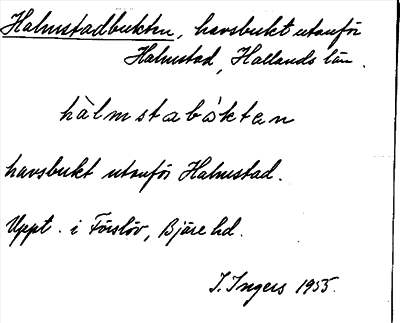 Halmstadbukten, havsbukt utanför
Halmstad, Hallands län.
hàlmstabúkten
havsbukt utanför Halmstad.
Uppt. i Förslöv, Bjäre hd.
I. Ingers 1955.